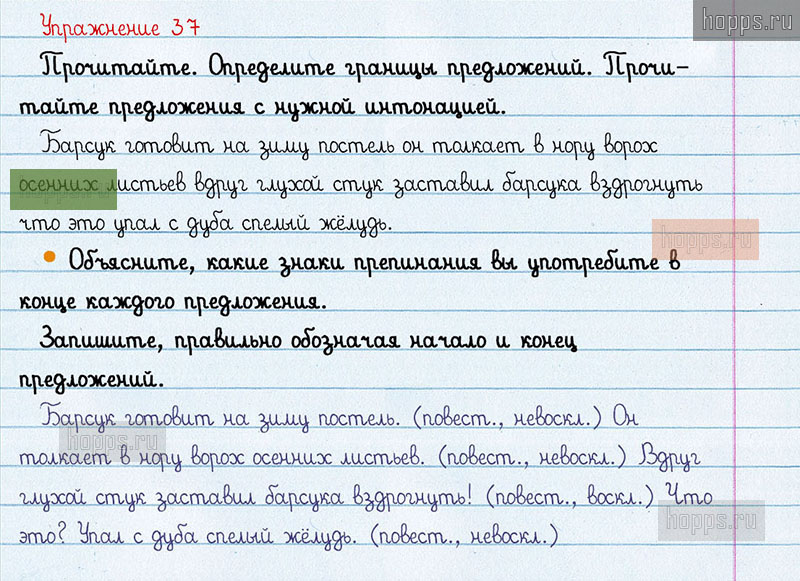 hopps.ru
Упражнение 37
Прочитайте. Определите границы предложений. Прочи-
тайте предложения с нужной интонацией.
Барсук готовит на зиму постель он толкает в нору ворох
осенних листьев вдруг глухой стук заставил барсука вздрогнуть
что это упал с дуба спелый жёлудь.
hopps.ru
hopps.ru
• Объясните, какие знаки препинания вы употребите в
конце каждого предложения.
Запишите, правильно обозначая начало и конец
предложений.
Барсук готовит на зиму постель. (повест., невоскл.) Он
hopps.ru
толкает в нору ворох осенних листьев. (повест., невоскл.) Вдруг
глухой стук заставил барсука вздрогнуть! (повест., воскл.) Что
hopps.ru
это? Упал с дуба спелый жёлудь. (повест., невоскл.)